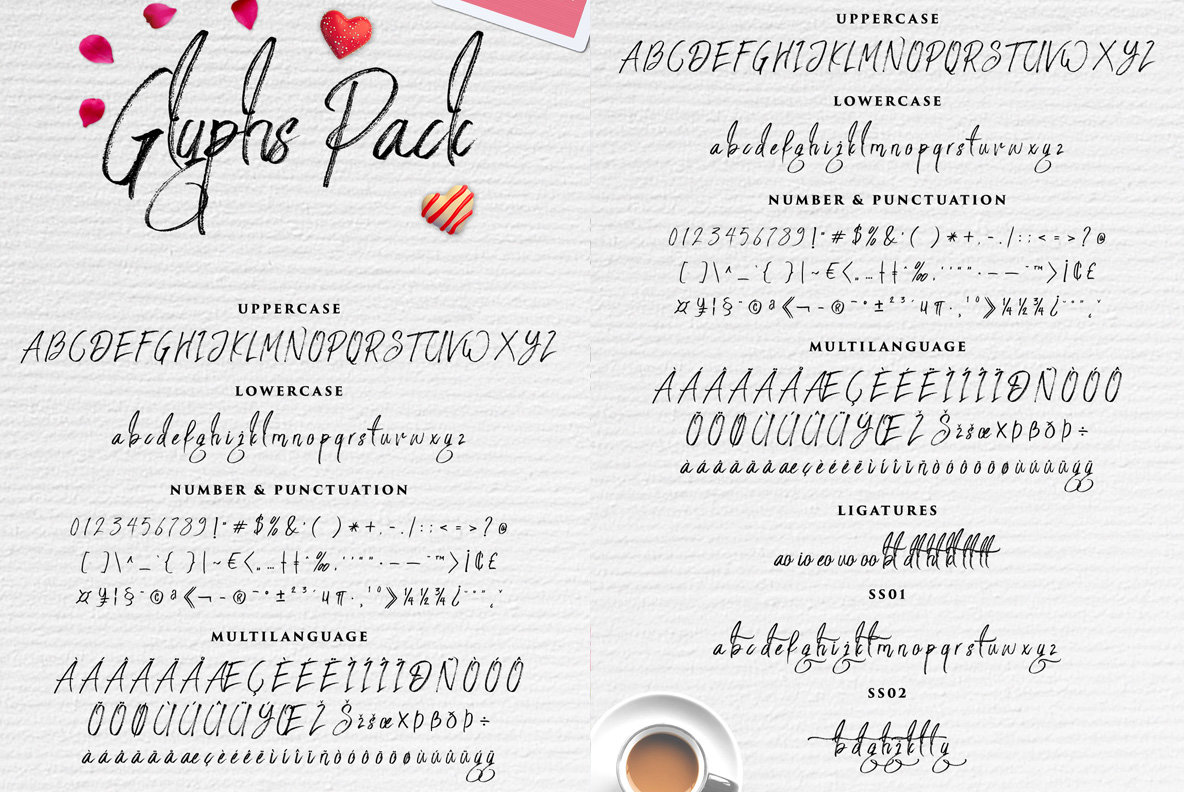 Glyphs Pack
UPPERCASE
ABCDEFGHIJKLMNOPQRSTUVWXYZ
LOWERCASE
abcdefghijklmnopqrstuvwxyz
NUMBER & PUNCTUATION
0123456789!"#$%&'()*+,-./:;<=>?@
[]\^_`{}|~€‹„…†‡ˆ‰‚‘’“”•–—˜™›¡¢£
¤¥¦§¨©ª«¬-®¯°±²³´µ¶·¸¹º»¼½¾¿
MULTILANGUAGE
ÀÁÂÃÄÅÆÇÈÉÊËÌÍÎÏÐÑÒÓÔ
ÕÖØÙÚÛÜÝŒŽŠžšœ×Þßðþ÷
àáâãäåæçèéêëìíîïñòóôõöøùúûüýÿ
UPPERCASE
ABCDEFGHIJKLMNOPQRSTUVWXYZ
LOWERCASE
abcdefghijklmnopqrstuvwxyz
NUMBER & PUNCTUATION
0123456789!"#$%&'()*+,-./:;<=>?@
[]\^_`{}|~€‹„…†‡ˆ‰‚‘’“”•–—˜™›¡¢£
¤¥¦§¨©ª«¬-®¯°±²³´µ¶·¸¹º»¼½¾¿
MULTILANGUAGE
ÀÁÂÃÄÅÆÇÈÉÊËÌÍÎÏÐÑÒÓÔ
ÕÖØÙÚÛÜÝŒŽŠžšœ×Þßðþ÷
àáâãäåæçèéêëìíîïñòóôõöøùúûüýÿ
LIGATURES
ao io eo uo oo
SS01
abcdefghijklmnopqrstuvwxyz
SS02